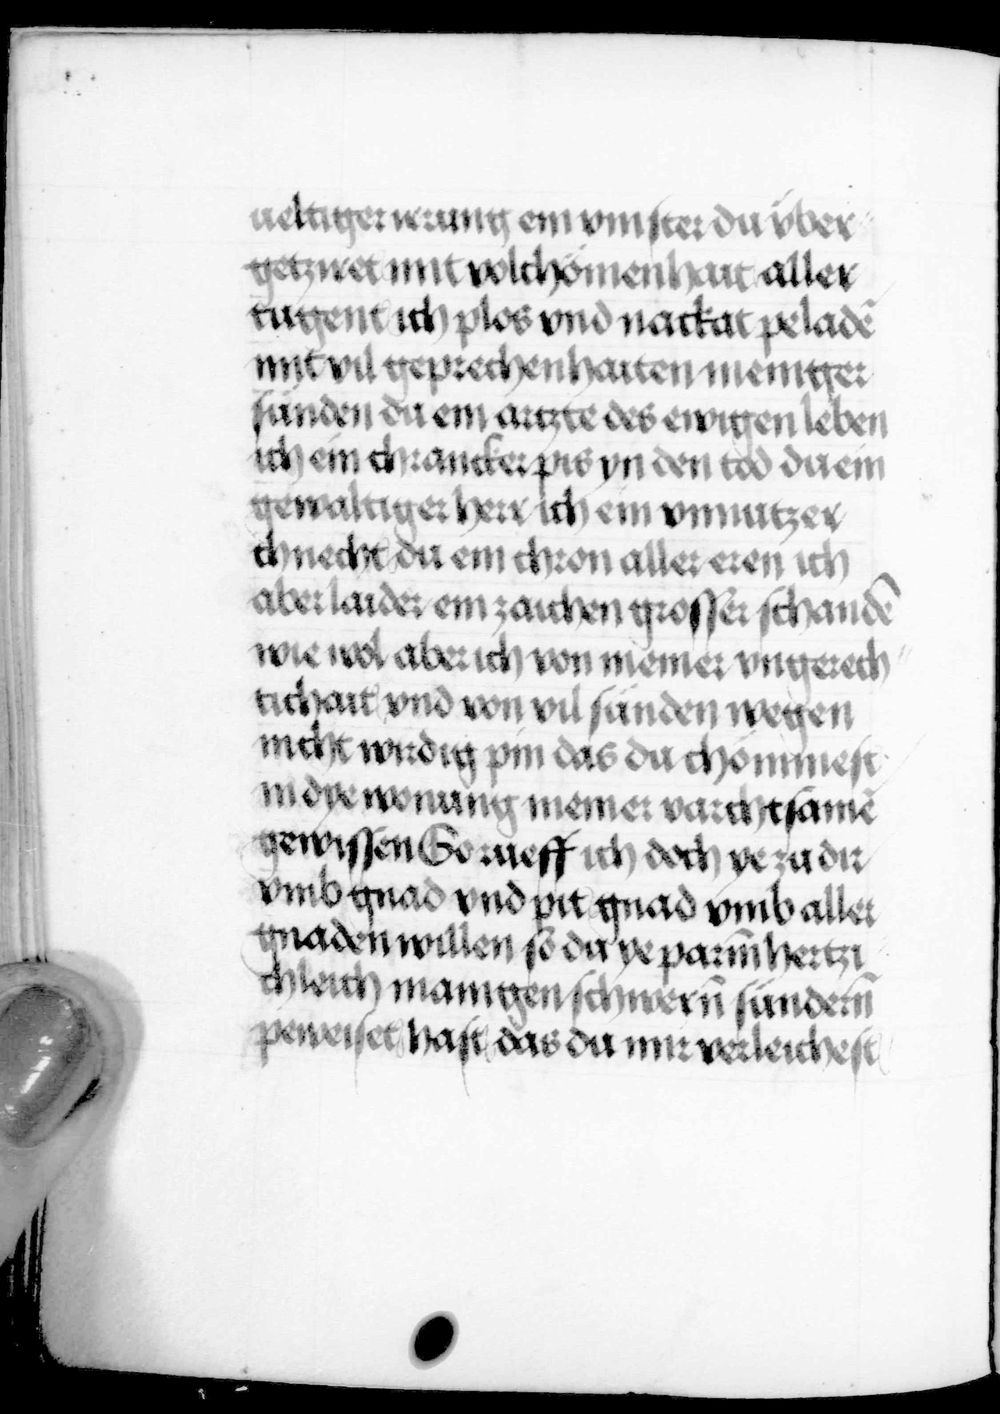 ueltiger irrung ein vinster du vber
getziret mit volchömenhait aller
tugent ich plos vnd nackat peladē
mit vil geprechenhaiten meniger
sünden du ein artzte des ewigen leben
ich ein chrancker pis yn den tod du ein
gewaltiger herr ich ein vnnutzer
chnecht du ein chron aller eren ich
aber laider ein zaichen grosser schandē
wie wol aber ich von meiner vngerech
tichait vnd von vil sünden wegen
nicht wirdig pin das du chömmest
in dye wonung meiner varchtsamē
gewissen So rueff ich doch ye zu dir
vmb gnad vnd pit gnad vmb aller
gnaden willen so du ye parm̄hertzi
chleich manigen schwern̄ sündern̄
peweiset hast das du mir verleichest